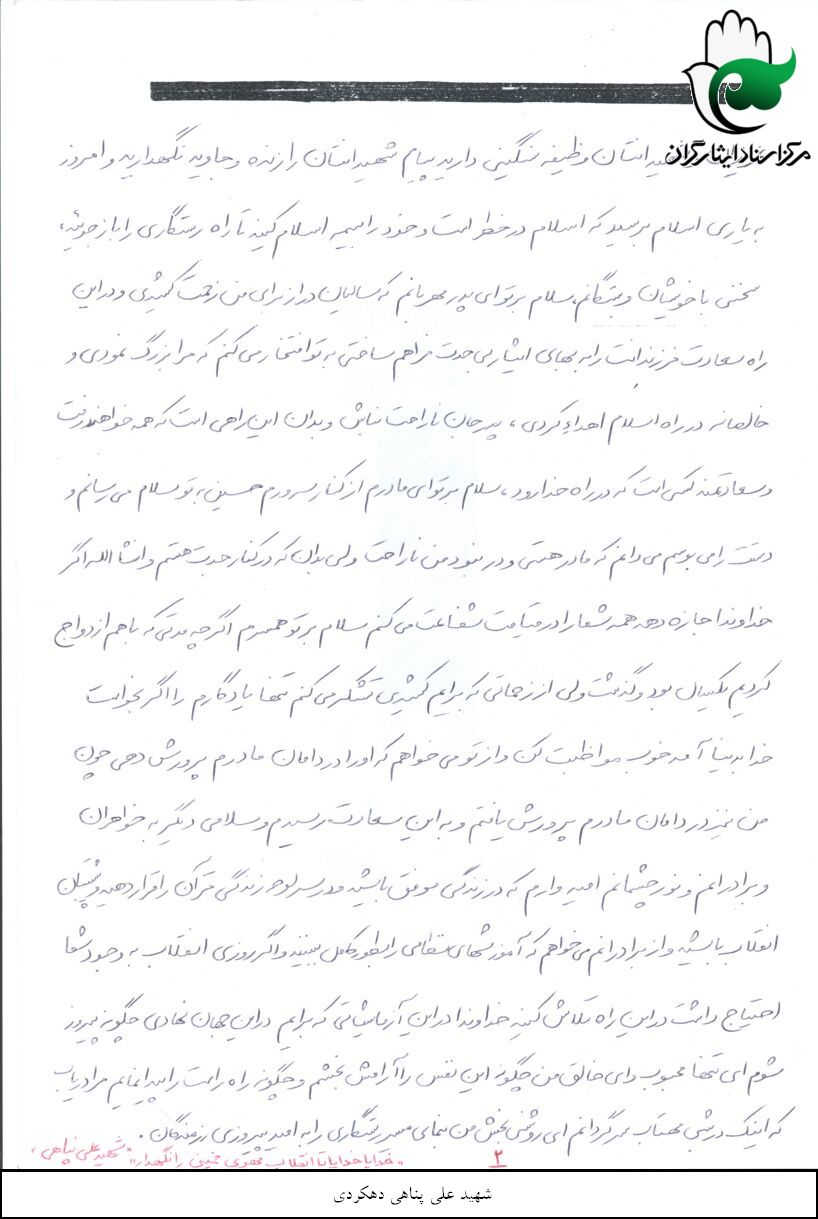 مرکز اسناد ایثارگران
شهیدانتان وظیفه سنگینی دارید پیام شهیدانتان را زنده و جاوید نگهدارید و امروز
به یاری اسلام برسید که اسلام در خطر است و خود را بیمه اسلام کنید تا راه رستگاری را باز جوئید،
سخنی با خویشان و بستگانم، سلام بر تو ای پدر مهربانم که سالیان دراز برای من زحمت کشیدی و در این
راه سعادت فرزندانت را به بهای ایثار بی حدت فراهم ساختی به تو افتخار می کنم که مرا بزرگ نمودی و
خالصانه در راه اسلام اهداء کردی، پدر جان ناراحت نباش و بدان این راهی است که همه خواهند رفت
و سعادتمند کسی است که در راه خدا رود، سلام بر تو ای مادرم از کنار سرورم حسین به تو سلام می رسانم و
دستت را می بوسم می دانم که مادر هستی و در نبود من ناراحت ولی بدان که در کنار جدت هستم و انشاالله اگر
خداوند اجازه دهد همه شما را در قیامت شفاعت می کنم سلام بر تو همسرم اگر چه مدتی که با هم ازدواج
کردیم یکسال بود و گذشت ولی از زحماتی که برایم کشیدی تشکر می کنم تنها یادگارم را اگر بخواست
خدا بدنیا آمد خوب مواظبت کن و از تو می خواهم که او را در دامان مادرم پرورش دهی چون
من نیز در دامان مادرم پرورش یافتم و به این سعادت رسیدم و سلامی دیگر به خواهران
و برادرانم و نور چشمانم امید وارم که در زندگی موفق باشید و در سرلوحه زندگی قرآن را قرار دهید و پشتیبان
انقلاب باشید و از برادرانم می خواهم که آموزشهای نظامی را بطور کامل ببینند و اگر روزی انقلاب به وجود شما
احتیاج داشت در این راه تلاش کنید خداوندا در این آزمایشاتی که برایم در این جهان نهادی چگونه پیروز
شوم ای تنها محبوب و ای خالق من چگونه این نفس را آرامش بخشم و چگونه راه راست را پیدا نمایم مرا دریاب
که اینک در شبی مهتاب سرگردانم ای روشنی بخش من بنمای مسیر رستگاری را به امید پیروزی رزمندگان.
۲ "خدایا خدایا تا انقلاب مهدی خمینی را نگهدار" "شهید علی پناهی"
شهید علی پناهی دهکردی